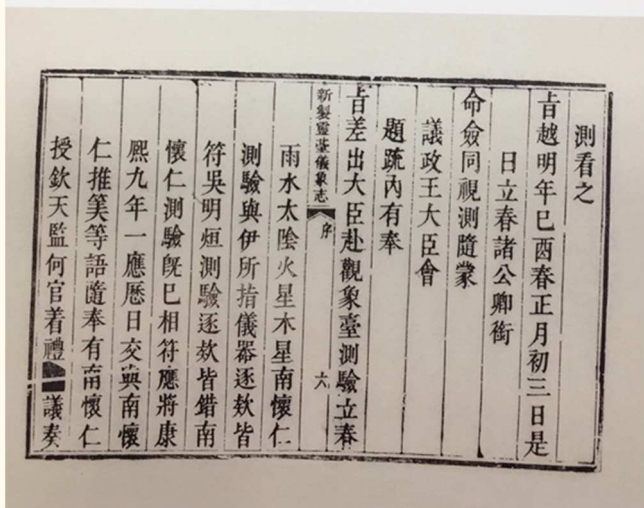 測看之
旨越明年巳酉春正月初三日是
日立春諸公卿銜
命僉同視測隨蒙
議政王大臣會
題疏內有奉
旨差出大臣赴觀象臺測驗立春
新製靈臺儀象志 序 六
雨水太陰火星木星南懷仁
測驗與伊所指儀器逐欵皆
符吳明烜測驗逐欵皆錯南
懷仁測驗旣巳相符應將康
熈九年一應曆日交與南懷
仁推筭等語隨奉有南懷仁
授欽天監何官着禮 議奏